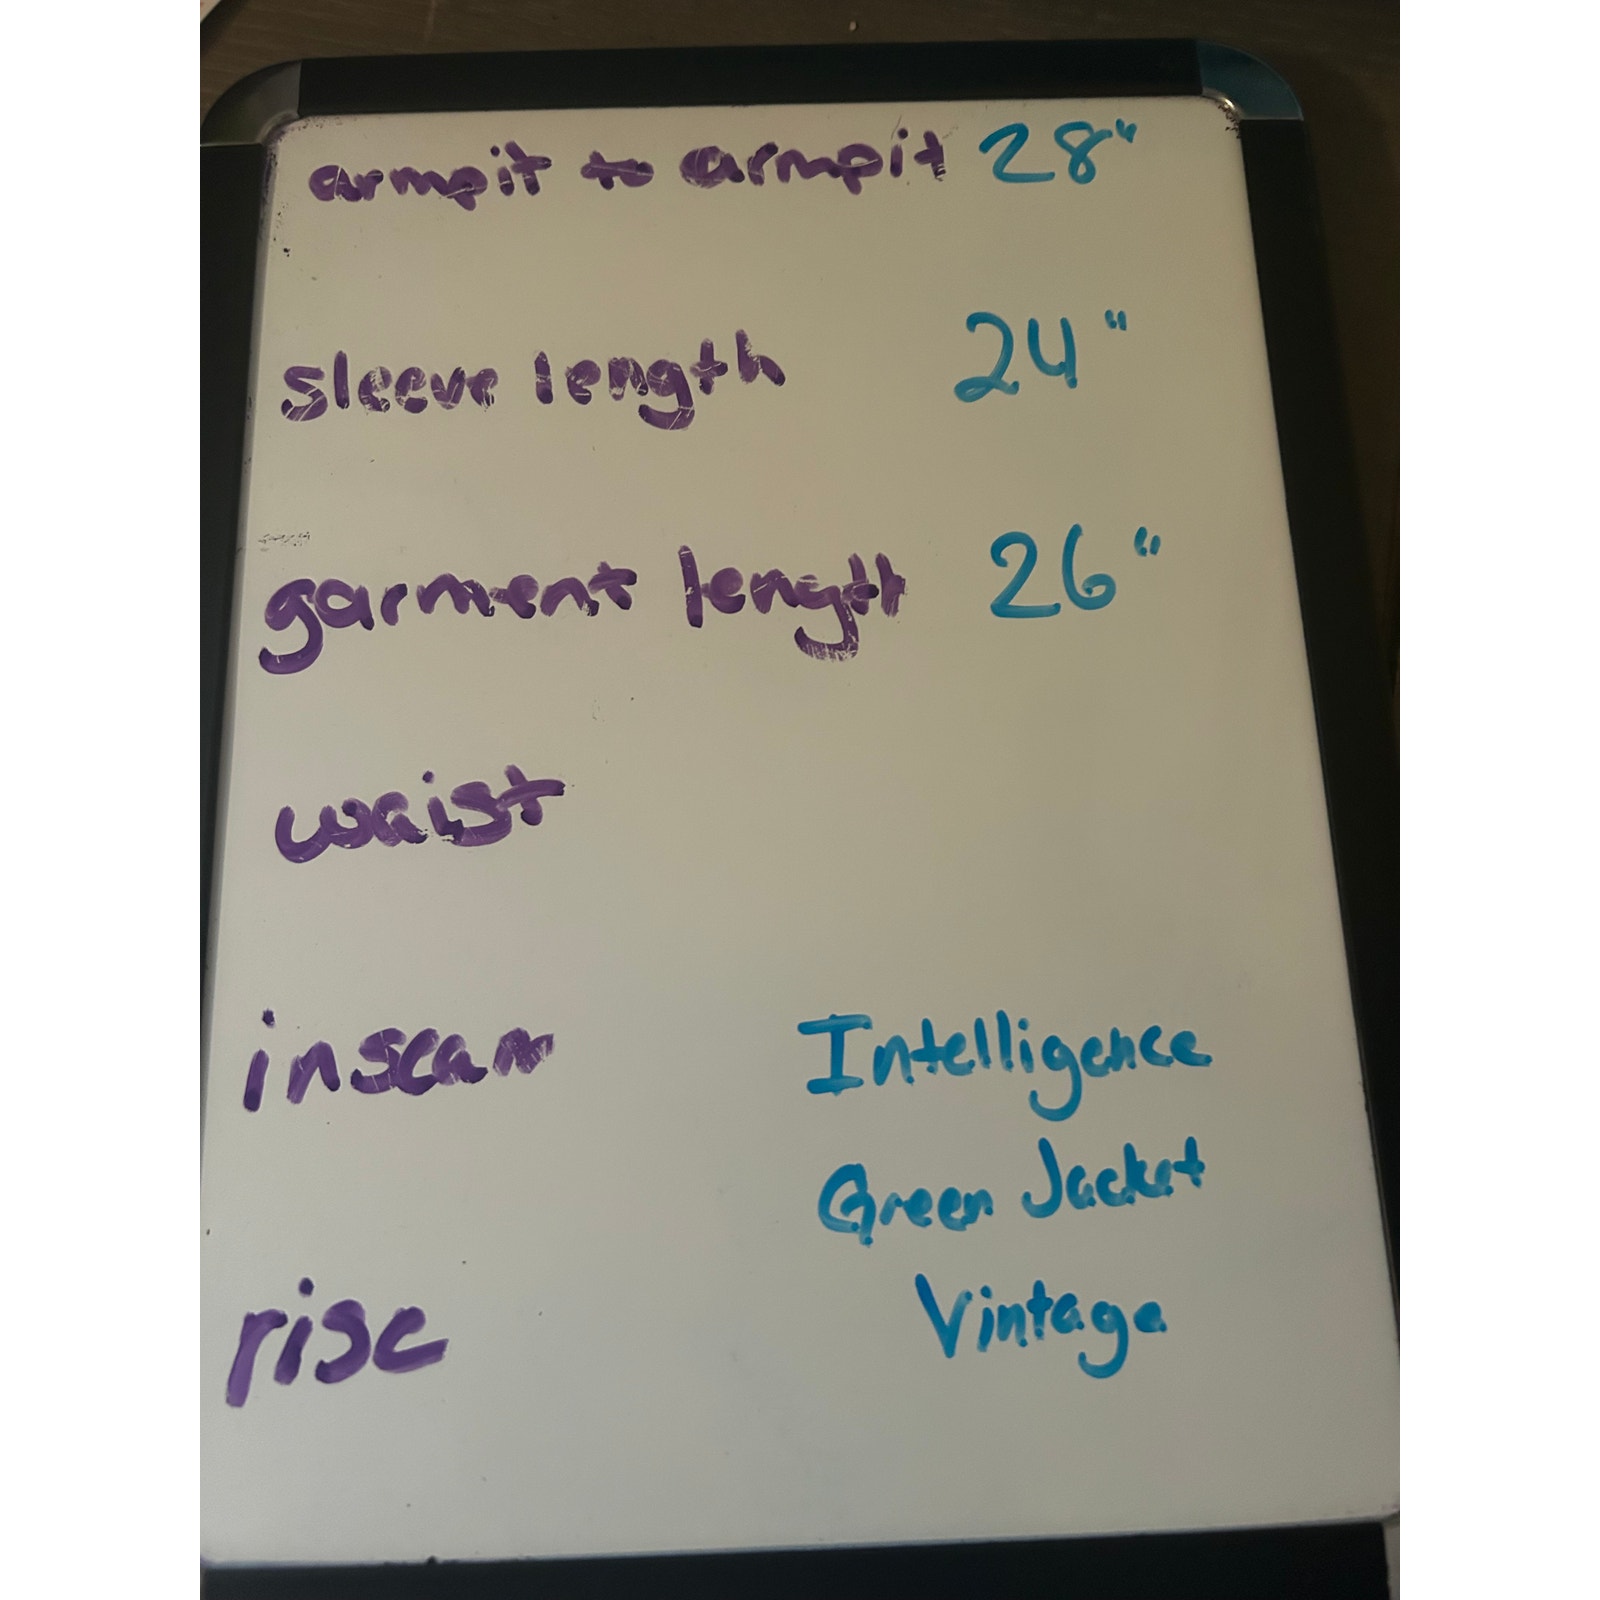 armpit to armpit 28"
sleeve length 24"
garment length 26"
waist
inseam
Intelligence
Green Jacket
rise
Vintage